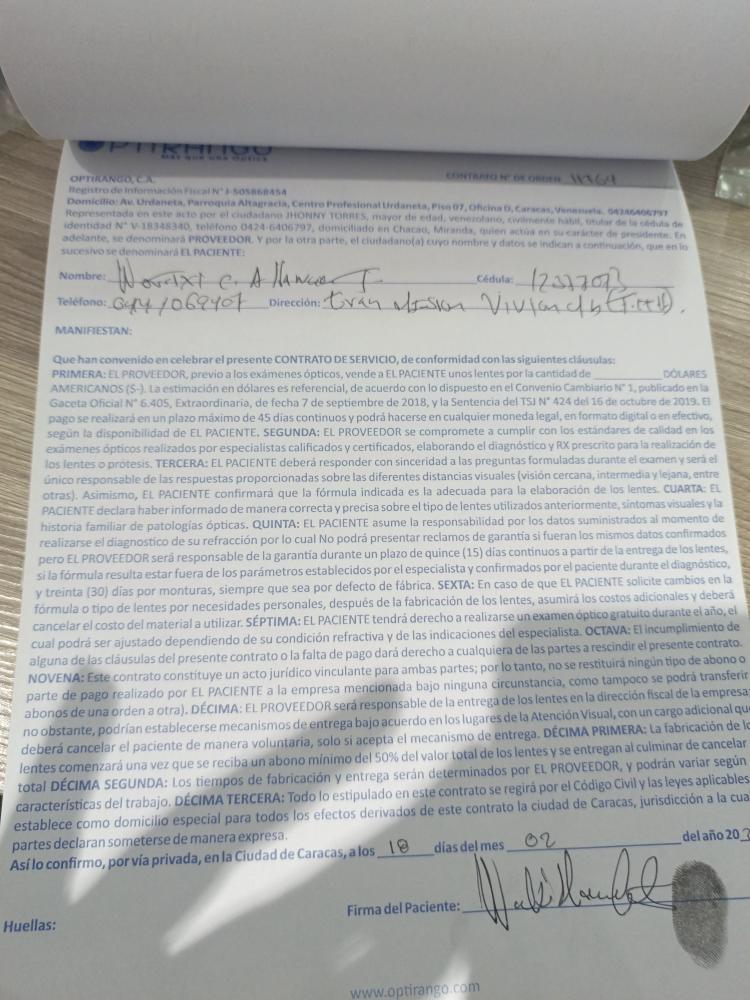 OPTIRANGO
MÁS QUE UNA ÓPTICA
OPTIRANGO, C.A. CONTRATO N° DE ORDEN
Registro de Información Fiscal N° J-505868454
Domicilio: Av. Urdaneta, Parroquia Altagracia, Centro Profesional Urdaneta, Piso 07, Oficina D, Caracas, Venezuela. 04246406797
Representada en este acto por el ciudadano JHONNY TORRES, mayor de edad, venezolano, civilmente hábil, titular de la cédula de
identidad N° V-18348340, teléfono 0424-6406797, domiciliado en Chacao, Miranda, quien actúa en su carácter de presidente. En
adelante, se denominará PROVEEDOR. Y por la otra parte, el ciudadano(a) cuyo nombre y datos se indican a continuación, que en lo
sucesivo se denominará EL PACIENTE:
Nombre: Cédula:
Teléfono: Dirección: Gran Mision
MANIFIESTAN:
Que han convenido en celebrar el presente CONTRATO DE SERVICIO, de conformidad con las siguientes cláusulas:
PRIMERA: EL PROVEEDOR, previo a los exámenes ópticos, vende a EL PACIENTE unos lentes por la cantidad de DÓLARES
AMERICANOS (S-). La estimación en dólares es referencial, de acuerdo con lo dispuesto en el Convenio Cambiario N° 1, publicado en la
Gaceta Oficial N° 6.405, Extraordinaria, de fecha 7 de septiembre de 2018, y la Sentencia del TSJ N° 424 del 16 de octubre de 2019. El
pago se realizará en un plazo máximo de 45 días continuos y podrá hacerse en cualquier moneda legal, en formato digital o en efectivo,
según la disponibilidad de EL PACIENTE. SEGUNDA: EL PROVEEDOR se compromete a cumplir con los estándares de calidad en los
exámenes ópticos realizados por especialistas calificados y certificados, elaborando el diagnóstico y RX prescrito para la realización de
los lentes o prótesis. TERCERA: EL PACIENTE deberá responder con sinceridad a las preguntas formuladas durante el examen y será el
único responsable de las respuestas proporcionadas sobre las diferentes distancias visuales (visión cercana, intermedia y lejana, entre
otras). Asimismo, EL PACIENTE confirmará que la fórmula indicada es la adecuada para la elaboración de los lentes. CUARTA: EL
PACIENTE declara haber informado de manera correcta y precisa sobre el tipo de lentes utilizados anteriormente, síntomas visuales y la
historia familiar de patologías ópticas. QUINTA: EL PACIENTE asume la responsabilidad por los datos suministrados al momento de
realizarse el diagnostico de su refracción por lo cual No podrá presentar reclamos de garantía si fueran los mismos datos confirmados
pero EL PROVEEDOR será responsable de la garantía durante un plazo de quince (15) días continuos a partir de la entrega de los lentes,
si la fórmula resulta estar fuera de los parámetros establecidos por el especialista y confirmados por el paciente durante el diagnóstico,
y treinta (30) días por monturas, siempre que sea por defecto de fábrica. SEXTA: En caso de que EL PACIENTE solicite cambios en la
fórmula o tipo de lentes por necesidades personales, después de la fabricación de los lentes, asumirá los costos adicionales y deberá
cancelar el costo del material a utilizar. SÉPTIMA: EL PACIENTE tendrá derecho a realizarse un examen óptico gratuito durante el año, el
cual podrá ser ajustado dependiendo de su condición refractiva y de las indicaciones del especialista. OCTAVA: El incumplimiento de
alguna de las cláusulas del presente contrato o la falta de pago dará derecho a cualquiera de las partes a rescindir el presente contrato.
NOVENA: Este contrato constituye un acto jurídico vinculante para ambas partes; por lo tanto, no se restituirá ningún tipo de abono o
parte de pago realizado por EL PACIENTE a la empresa mencionada bajo ninguna circunstancia, como tampoco se podrá transferir
abonos de una orden a otra). DÉCIMA: EL PROVEEDOR será responsable de la entrega de los lentes en la dirección fiscal de la empresa
no obstante, podrían establecerse mecanismos de entrega bajo acuerdo en los lugares de la Atención Visual, con un cargo adicional que
deberá cancelar el paciente de manera voluntaria, solo si acepta el mecanismo de entrega. DÉCIMA PRIMERA: La fabricación de lo
lentes comenzará una vez que se reciba un abono mínimo del 50% del valor total de los lentes y se entregan al culminar de cancelar
total DÉCIMA SEGUNDA: Los tiempos de fabricación y entrega serán determinados por EL PROVEEDOR, y podrán variar según
características del trabajo. DÉCIMA TERCERA: Todo lo estipulado en este contrato se regirá por el Código Civil y las leyes aplicables
establece como domicilio especial para todos los efectos derivados de este contrato la ciudad de Caracas, jurisdicción a la cua
partes declaran someterse de manera expresa.
Así lo confirmo, por vía privada, en la Ciudad de Caracas, a los 18 días del mes 02 del año 202
Firma del Paciente:
Huellas:
www.optirango.com